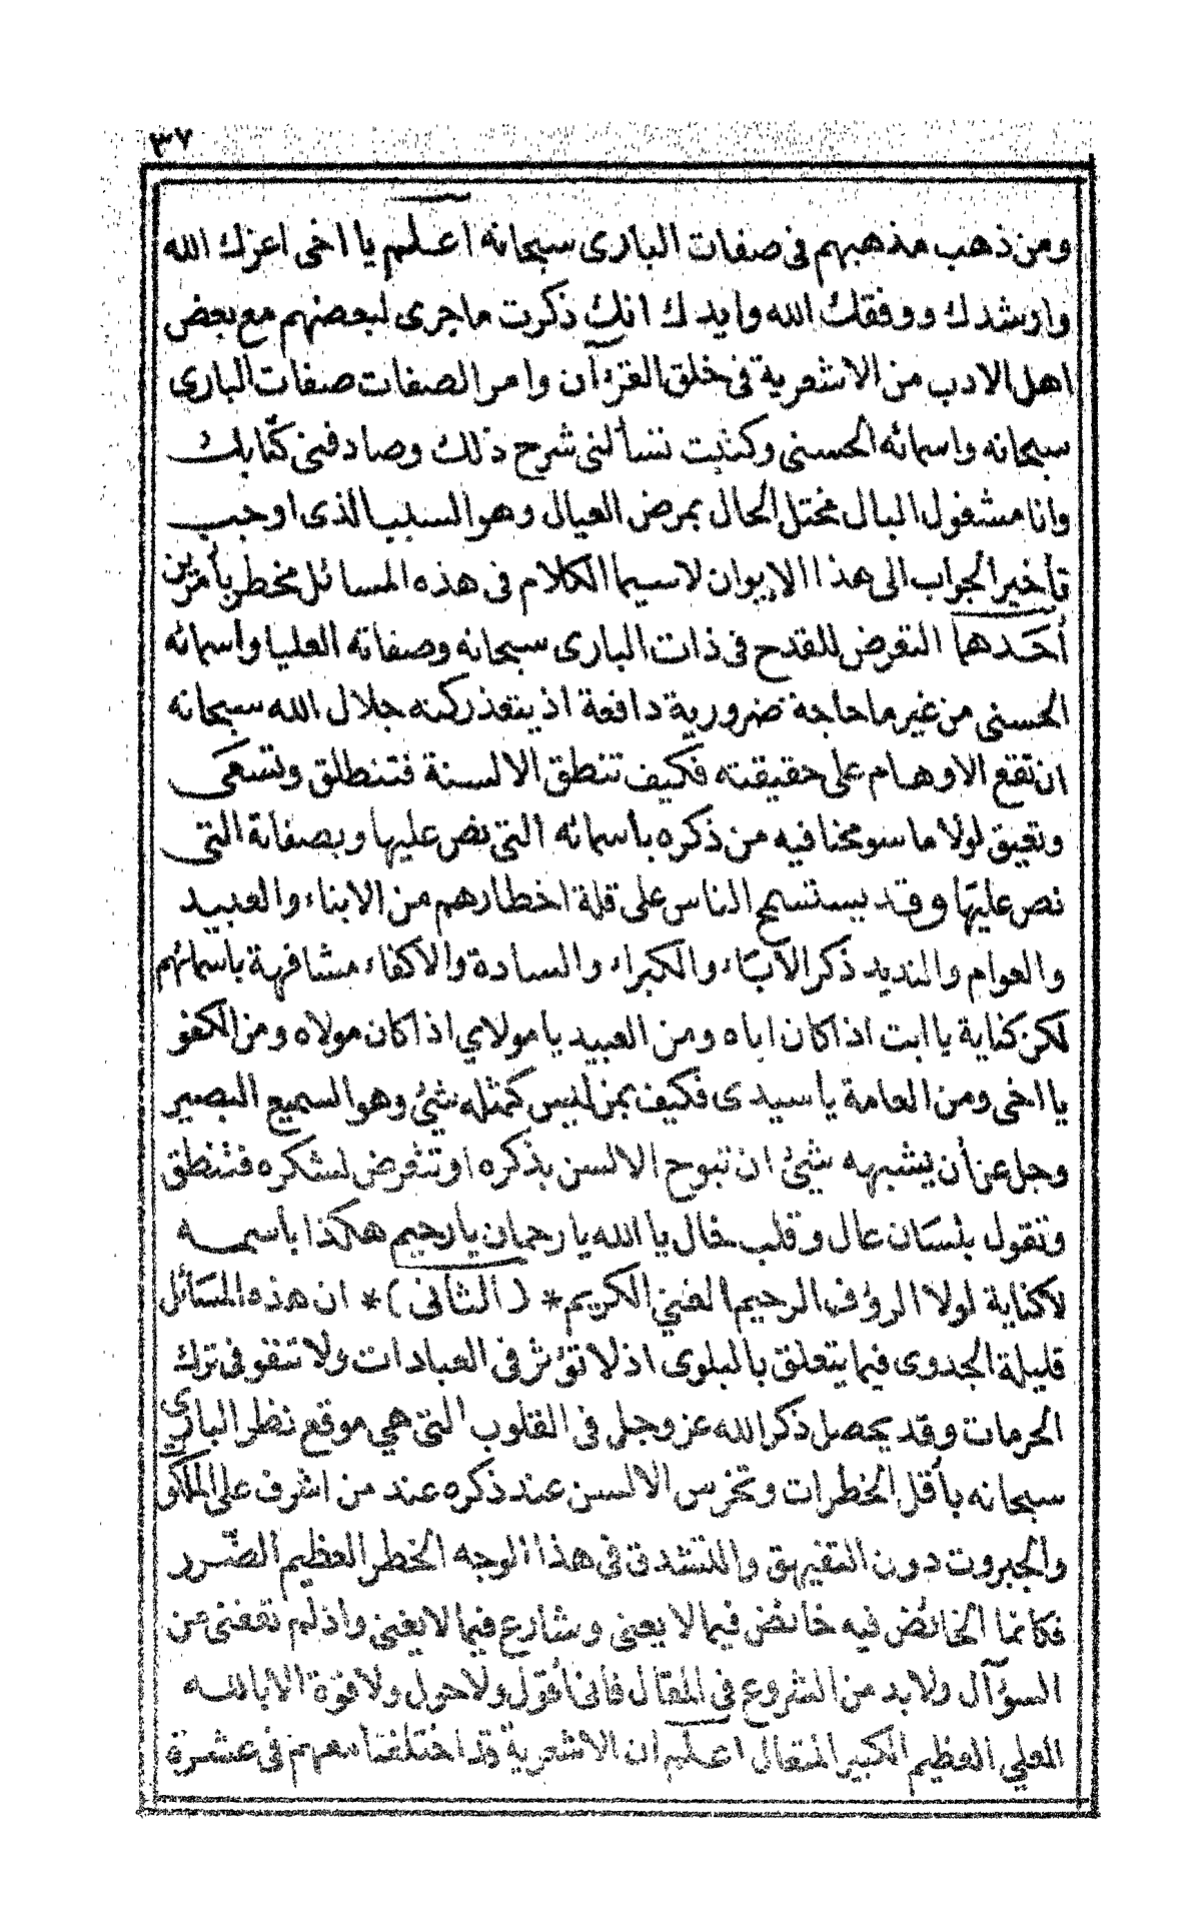 ٣٧
ومن ذهب مذهبهم فى صفات البارى سبحانه اعلم يا اخى اعزك الله
وارشدك ووفقك الله وايدك انك ذكرت ماجرى لبعضهم مع بعض
اهل الادب من الاشعرية فى خلق القرءآن وامر الصفات صفات البارى
سبحانه واسمائه الحسنى وكتبت تسألنى شرح ذلك وصادفنى كتابك
وانا مشغول البال مختل الحال بمرض العيال وهو السبب الذى اوجب
تأخير الجواب الى هذا الايوان لاسيما الكلام فى هذه المسائل مخطر بأمرين
أحدهما التعرض للقدح فى ذات البارى سبحانه وصفاته العليا واسمائه
الحسنى من غير ماحاجة ضرورية دافعة اذ يتعذر كنه جلال الله سبحانه
ان تقع الاوهام على حقيقته فكيف تنطق الالسنة فتنطلق وتسعى
وتعيق لولا ما سومحنا فيه من ذكره باسمائه التى نص عليها وبصفاته التى
نص عليها وقد يستسمح الناس على قلة اخطارهم من الابناء والعبيد
والعوام والنديد ذكر الآباء والكبراء والسادة والاكفاء مشافهة باسمائهم
لكن كناية يا ابت اذا كان اباه ومن العبيد يا مولاي اذا كان مولاه ومن الكفو
يا اخى ومن العامة يا سيدى فكيف بمن ليس كمثله شئ وهو السميع البصير
وجل عن أن يشبهه شئ ان تبوح الالسن بذكره او تتعرض لشكره فتنطق
وتقول بلسان عال وقلب خال يا الله يا رحمان يا رحيم هكذا باسمه
لا كناية لولا الرؤف الرحيم الغني الكريم * (الثانى) * ان هذه المسائل
قليلة الجدوى فيما يتعلق بالبلوى اذ لا تؤثر فى العبادات ولا تنفو فى ترك
الحرمات وقد يحصل ذكر الله عز وجل فى القلوب التى هي موقع نظر الباري
سبحانه بأقل الخطرات وتخرس الالسن عند ذكره عند من اشرف على الملكو
والجبروت دون التفيهق والتشدق فى هذا الوجه الخطر العظيم الضرر
فكانما الخائض فيه خائض فيما لا يعنى وشارع فيما لا يغنى واذ لم تعفنى من
السؤآل ولا بد من الشروع فى المقال فانى أقول ولا حول ولا قوة الا بالله
العلي العظيم الكبير المتعال اعلم ان الاشعرية قد اختلفنا معهم فى عشرة